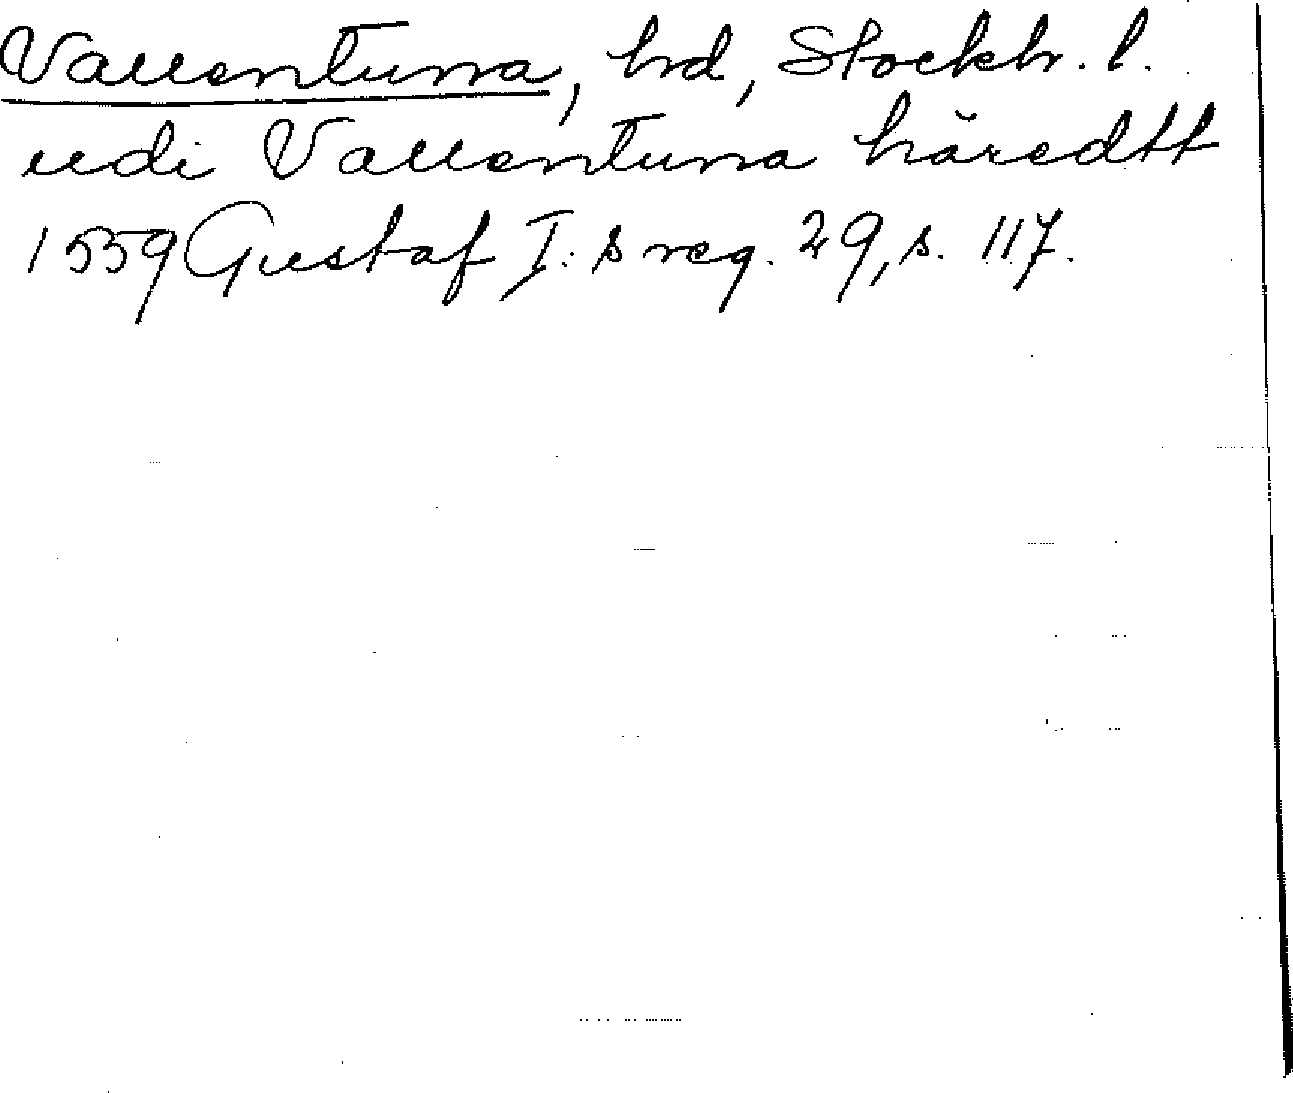 Vallentuna, hrd, Stockh. l.
udi Vallentuna häredtt
1559 Gustaf I:s reg. 29, s. 117.